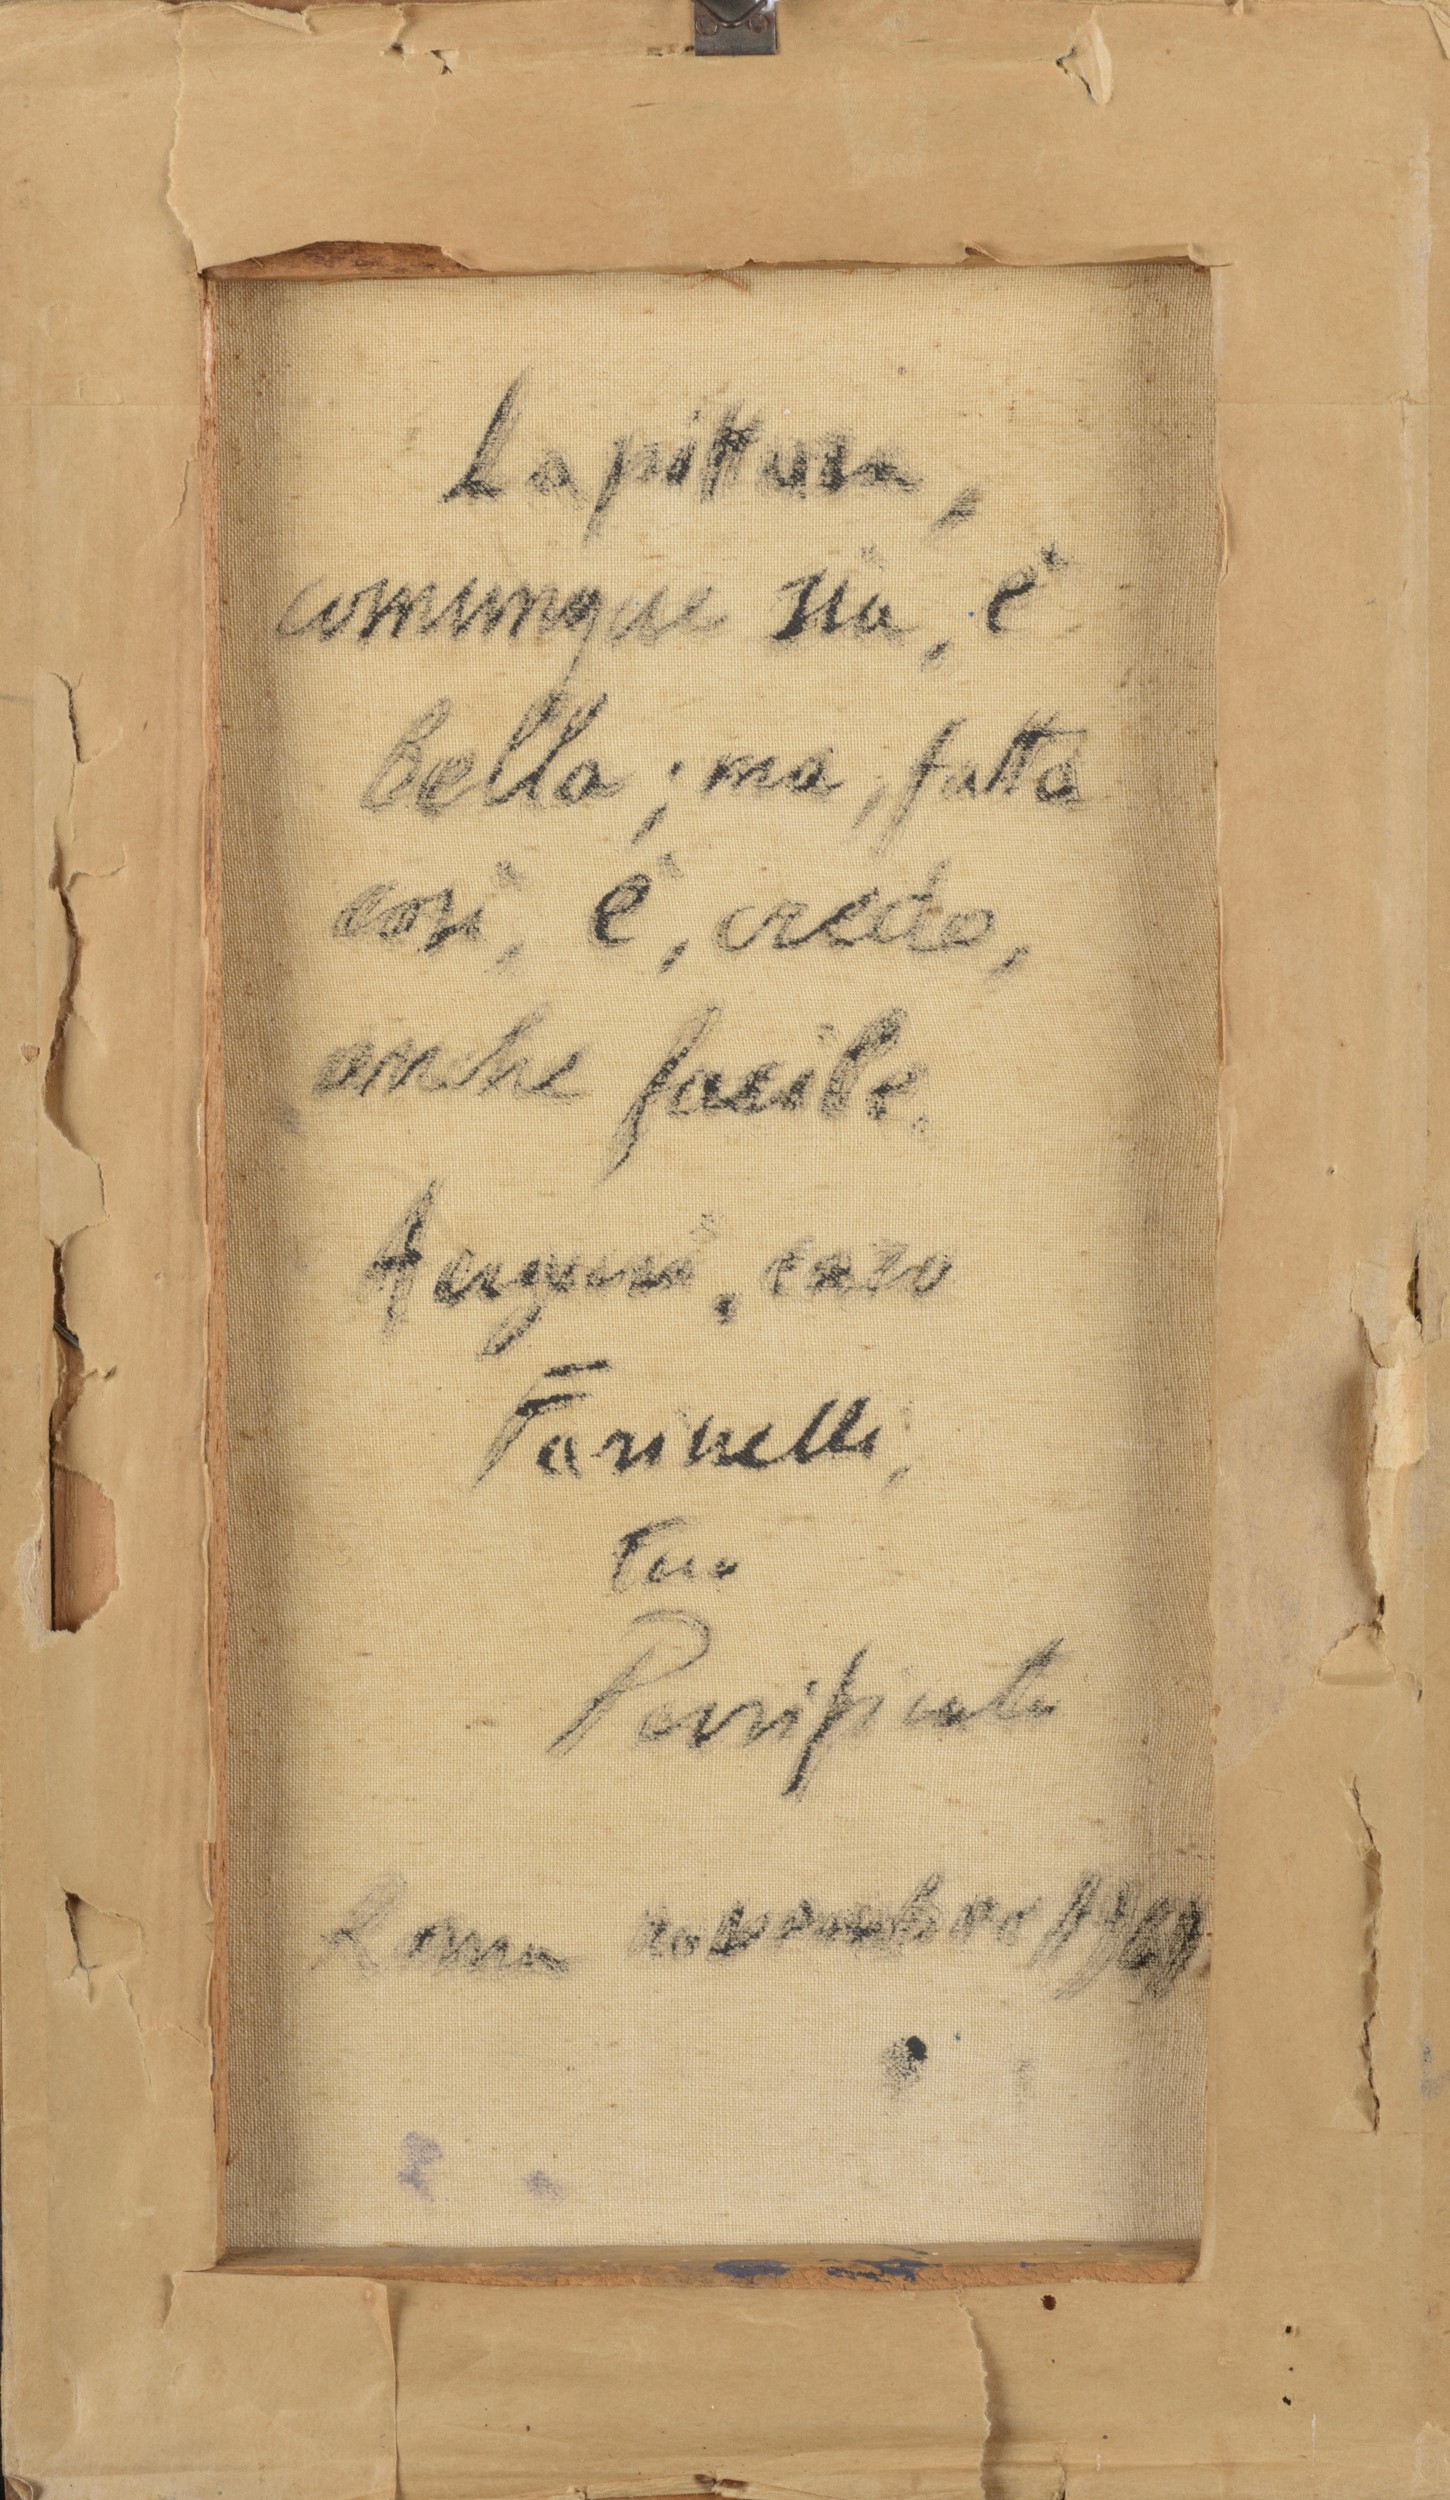 La pittura,
comunque sia, è
bella; ma, fatta
così, è, credo,
anche facile.
Auguri, caro
Farinelli,
tuo
Novembre